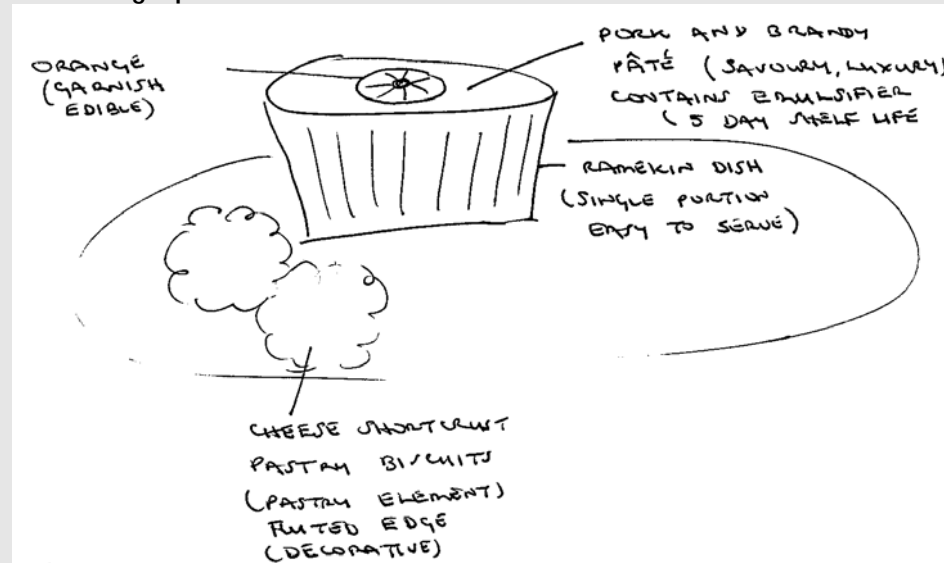 ORANGE
(GARNISH
EDIBLE)
PORK AND BRANDY
PÂTÉ (SAVOURY, LUXURY)
CONTAINS EMULSIFIER
(5 DAY SHELF LIFE
RAMEKIN DISH
(SINGLE PORTION
EASY TO SERVE)
CHEESE SHORTCRUST
PASTRY BISCUITS
(PASTRY ELEMENT)
FLUTED EDGE
(DECORATIVE)